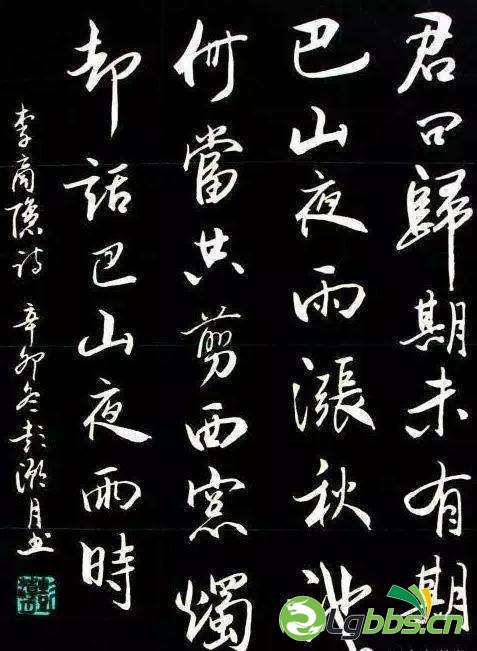 君問歸期未有期
巴山夜雨漲秋池
何當共剪西窓燭
却話巴山夜雨時
李商隱詩 辛卯冬彭月书
Lgbbs.cn